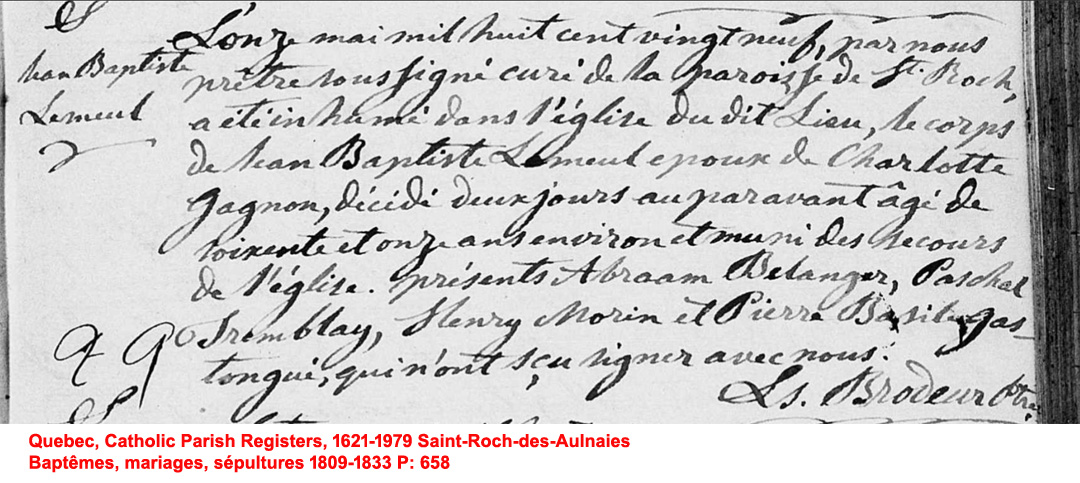 S
Jean Baptiste
Lemeul
L'onze mai mil huit cent vingt neuf, par nous
prêtre soussigné curé de la paroisse de St. Roch,
a été inhumé dans l'église du dit Lieu, le corps
de Jean Baptiste Lemeul epoux de Charlotte
Gagnon, décédé deux jours auparavant âgé de
soixente et onze ans environ et muni des secours
de l'église. présents Abraam Belanger, Paschal
Tremblay, Henry Morin et Pierre Basile gas-
tongué, qui n'ont sçu signer avec nous.
Ls. Brodeur Ptre
Quebec, Catholic Parish Registers, 1621-1979 Saint-Roch-des-Aulnaies
Baptêmes, mariages, sépultures 1809-1833 P: 658